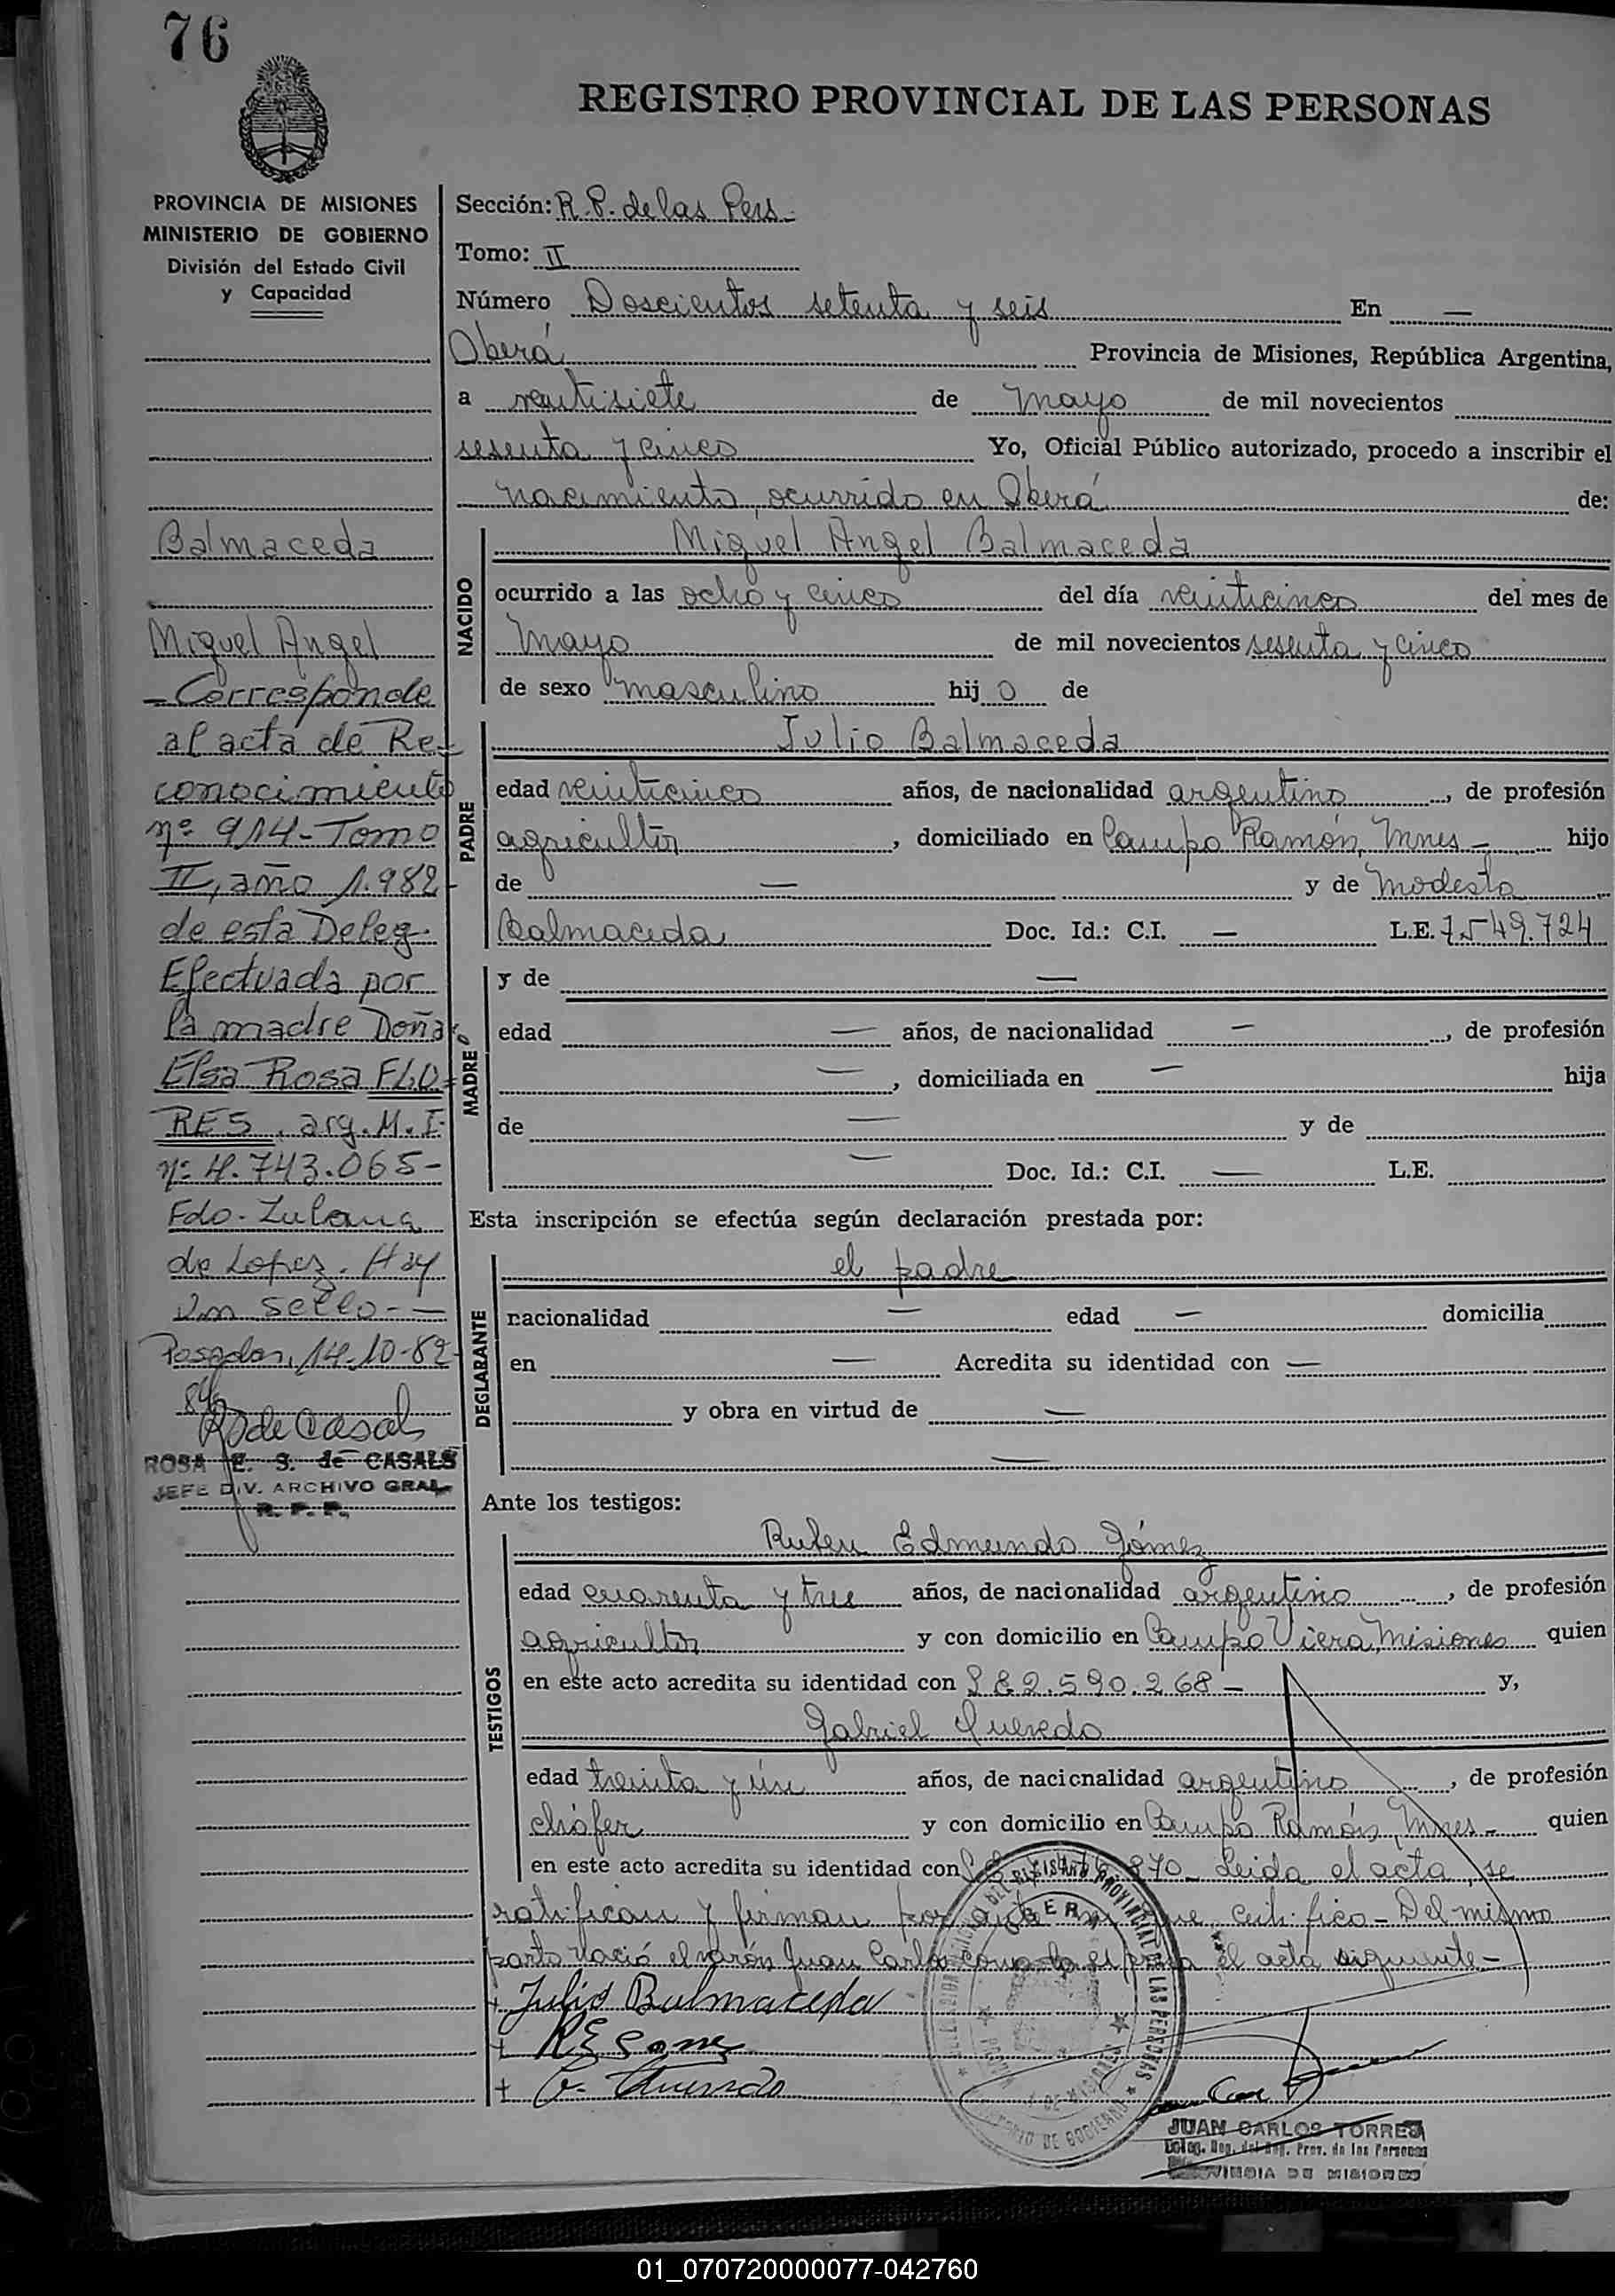 76
REGISTRO PROVINCIAL DE LAS PERSONAS
PROVINCIA DE MISIONES
MINISTERIO DE GOBIERNO
División del Estado Civil
y Capacidad
Balmaceda
Miguel Angel
- Corresponde
al acta de Re-
conocimiento
nº 914- Tomo
II, año 1.982-
de esta Deleg.
Efectuada por
la madre Doña
Elsa Rosa FLO=
RES, arg. M. I.
nº 4.743.065-
Fdo. Zulema
de Lopez. Hay
un sello-=
Posadas, 14-10-82-
ROSA E. S. de CASALS
JEFE DIV. ARCHIVO GRAL
R. P. P.
Sección: R. P. de las Pers-
Tomo: II
Número Doscientos setenta y seis En —
Oberá Provincia de Misiones, República Argentina,
a veintisiete de Mayo de mil novecientos
sesenta y cinco Yo, Oficial Público autorizado, procedo a inscribir el
nacimiento, ocurrido en Oberá de:
NACIDO
Miguel Angel Balmaceda
ocurrido a las ocho y cinco del día veinticinco del mes de
Mayo de mil novecientos sesenta y cinco
de sexo masculino hij o de
PADRE
Julio Balmaceda
edad veinticinco años, de nacionalidad argentino, de profesión
agricultor, domiciliado en Campo Ramón, Mnes - hijo
de — y de Modesta
Balmaceda Doc. Id.: C.I. — L.E. 7.549.724
MADRE
y de —
edad — años, de nacionalidad —, de profesión
—, domiciliada en — hija
de — y de
— Doc. Id.: C.I. — L.E.
Esta inscripción se efectúa según declaración prestada por:
DECLARANTE
el padre
nacionalidad — edad — domicilia
en — Acredita su identidad con —
y obra en virtud de —
—
Ante los testigos:
TESTIGOS
Ruben Edmundo Gómez
edad cuarenta y tres años, de nacionalidad argentino, de profesión
agricultor y con domicilio en Campo Viera, Misiones quien
en este acto acredita su identidad con 2.590.268- y,
Gabriel Quevedo
edad treinta y un años, de nacionalidad argentino, de profesión
chófer y con domicilio en Campo Ramón, Mnes - quien
en este acto acredita su identidad con 870- Leida el acta, se
ratifican y firman por ante mi que certifico- Del mismo
parto nació el varón Juan Carlos como lo expresa el acta siguiente-
+ Julio Balmaceda
+ R E Gomez
+ G. Quevedo
OBERA
JUAN CARLOS TORRES
Prov. de las Personas
PROVINCIA DE MISIONES
01_070720000077-042760